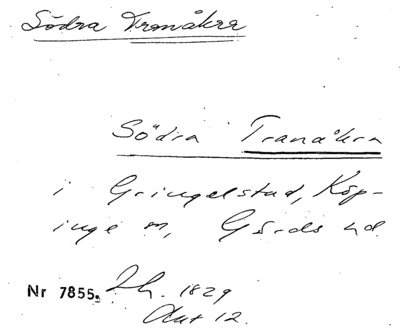 Södra Tranåkra
Södra Tranåkra
i Gringelstad, Köp-
inge sn, Gärds hd
Nr 7855. Lh. 1829
Akt 12.